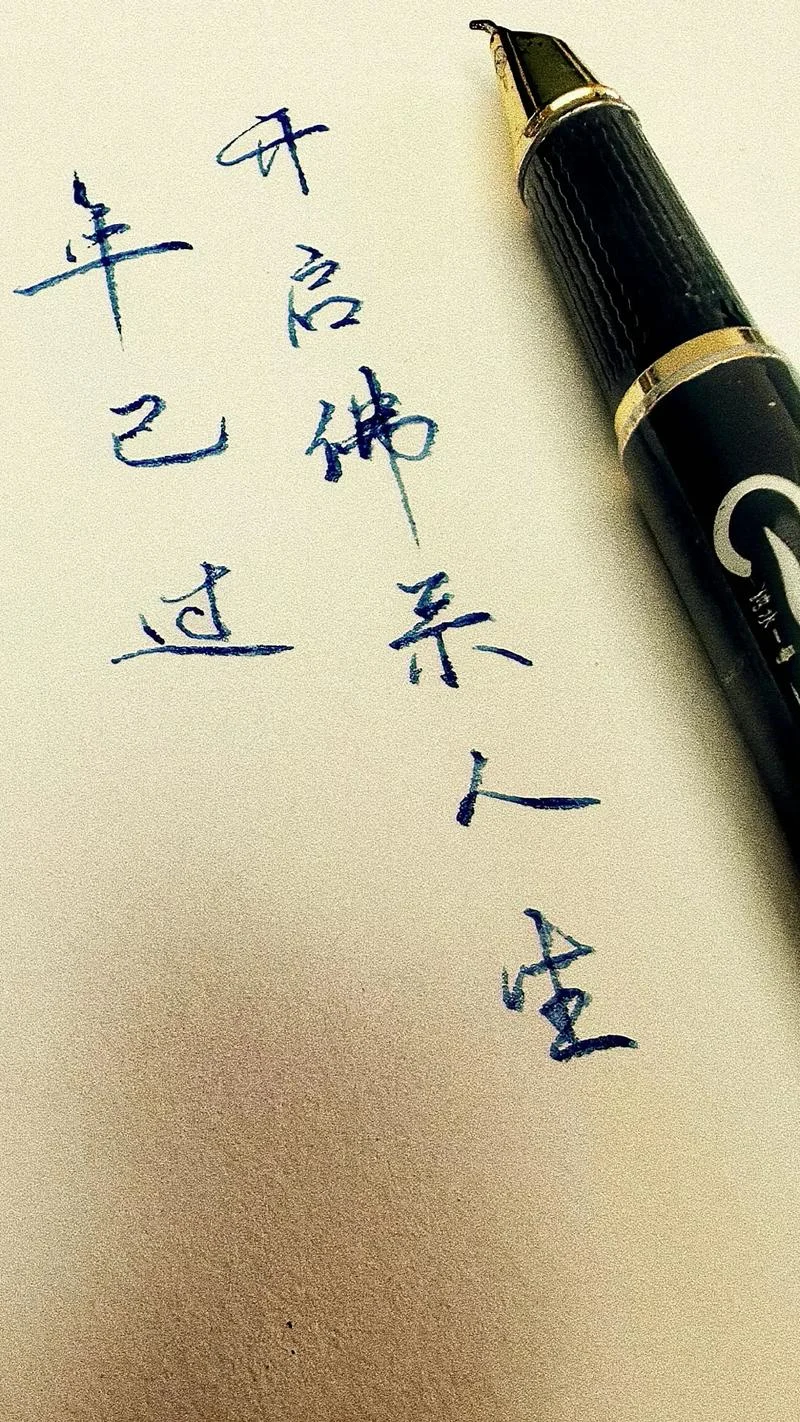 年已过
开启佛系人生